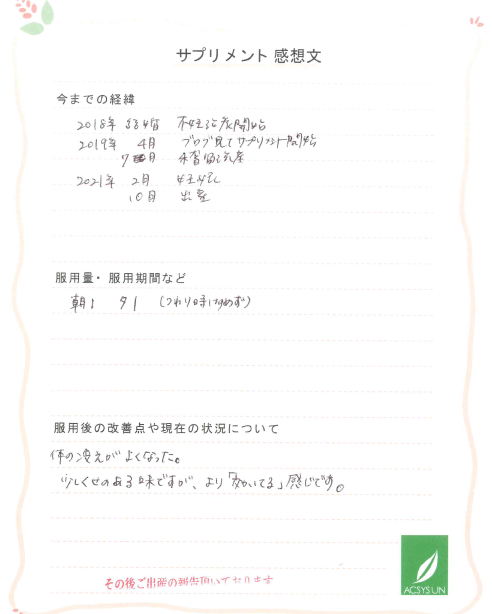 サプリメント 感想文
今までの経緯
2018年 結婚 不妊治療開始
2019年 4月 ブログ見てサプリメント開始
7月
2021年 2月 妊娠
10月 出産
服用量・服用期間など
朝1 夕1 (つわり時は飲めず)
服用後の改善点や現在の状況について
体の冷えがよくなった。
少しくせのある味ですが、より「効いてる」感じです。
その後ご出産の報告頂いております
ACSYSUN